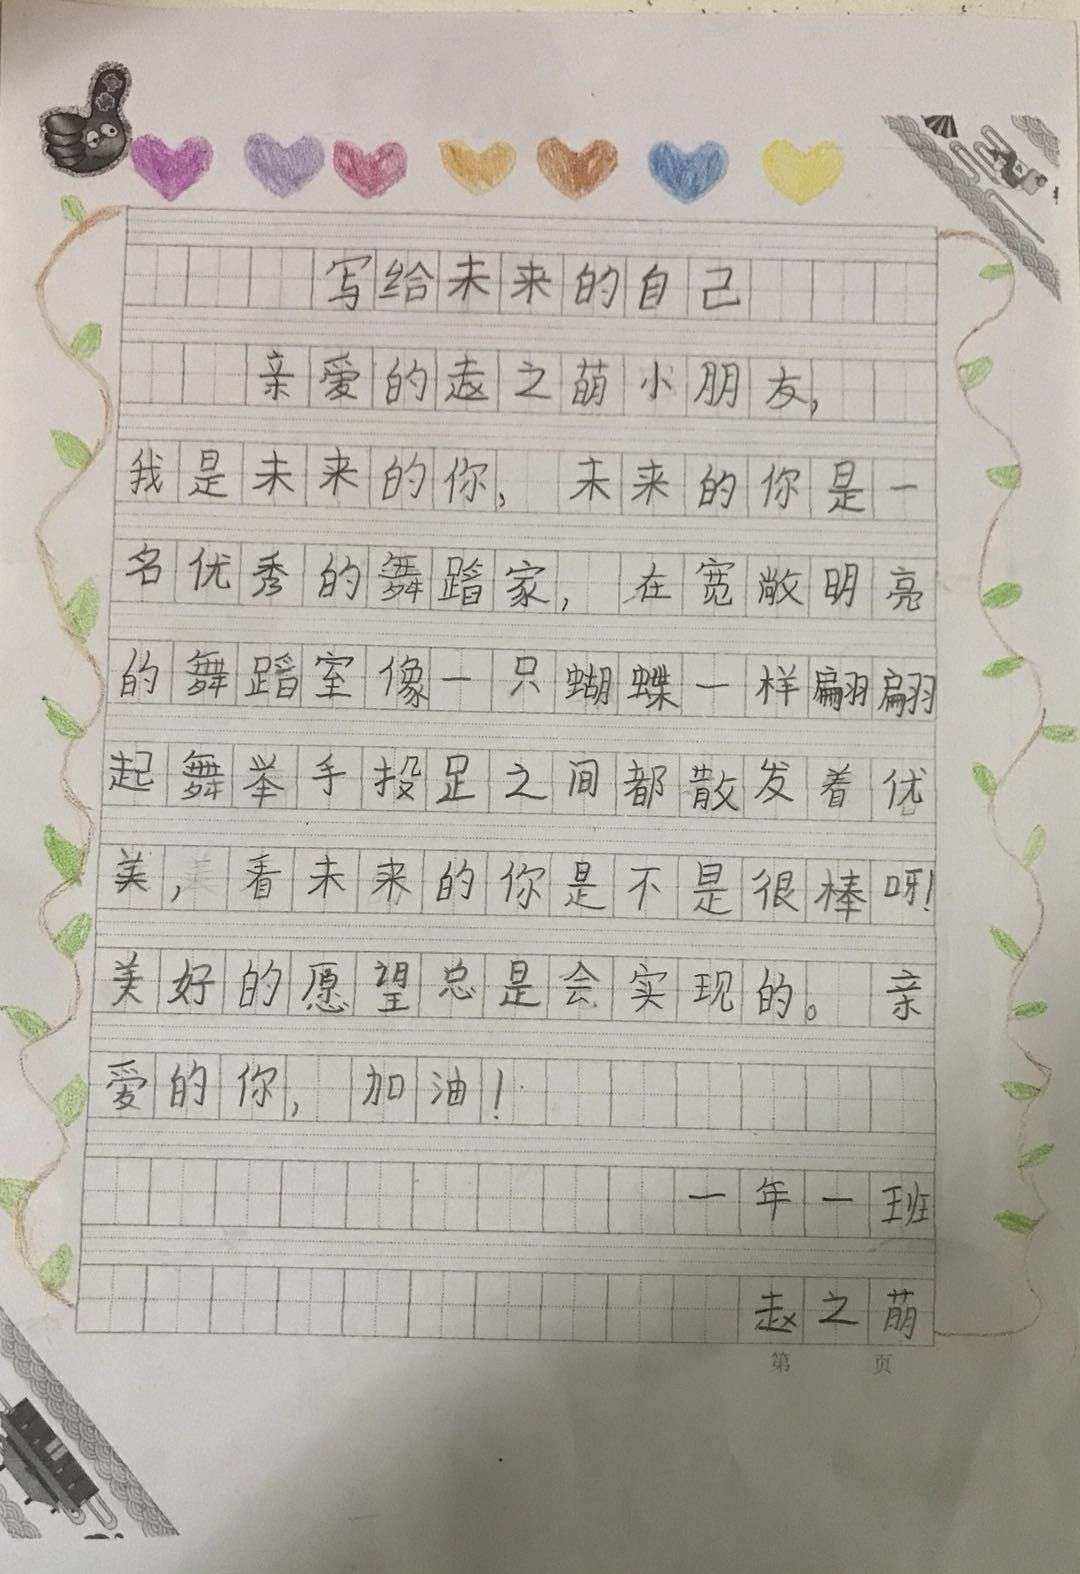 写给未来的自己
亲爱的赵之萌小朋友,
我是未来的你, 未来的你是一
名优秀的舞蹈家, 在宽敞明亮
的舞蹈室像一只蝴蝶一样翩翩
起舞举手投足之间都散发着优
美, 看未来的你是不是很棒呀!
美好的愿望总是会实现的。 亲
爱的你, 加油!
一年一班
赵之萌
第 页